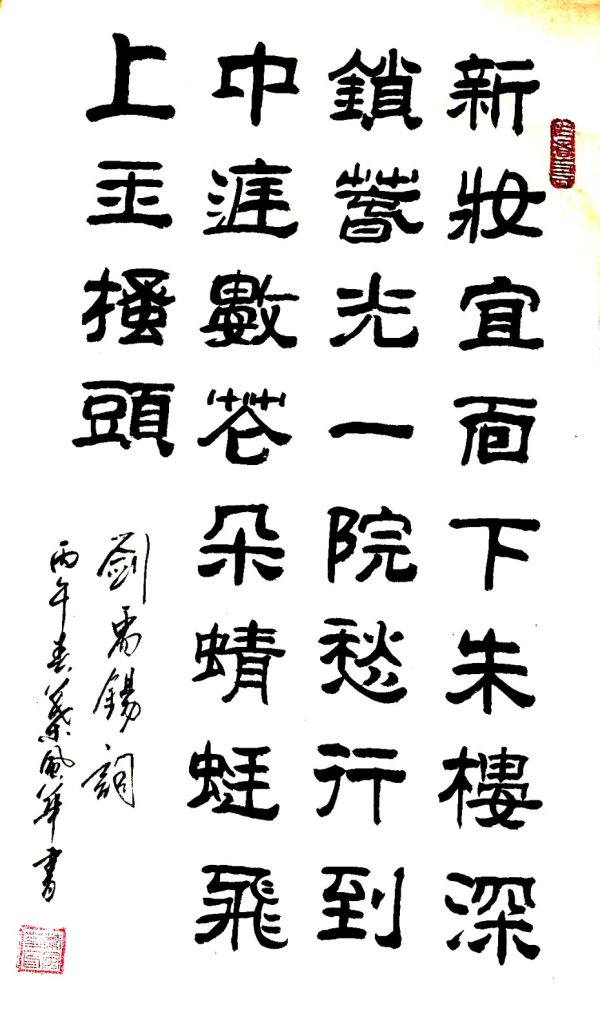 新妝宜面下朱樓深
鎖春光一院愁行到
中庭數花朵蜻蜓飛
上玉搔頭
劉禹錫詞
丙午春葉風華書